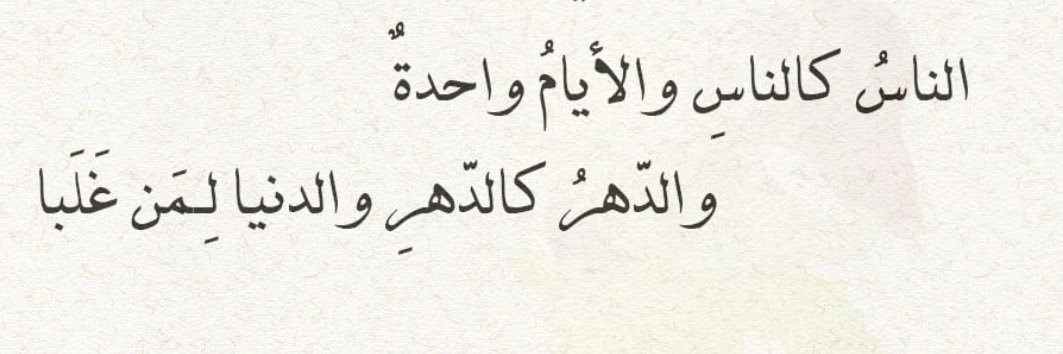 الناسُ كالناسِ والأيامُ واحدةٌ
والدّهرُ كالدّهرِ والدنيا لِـمَن غَلَبا